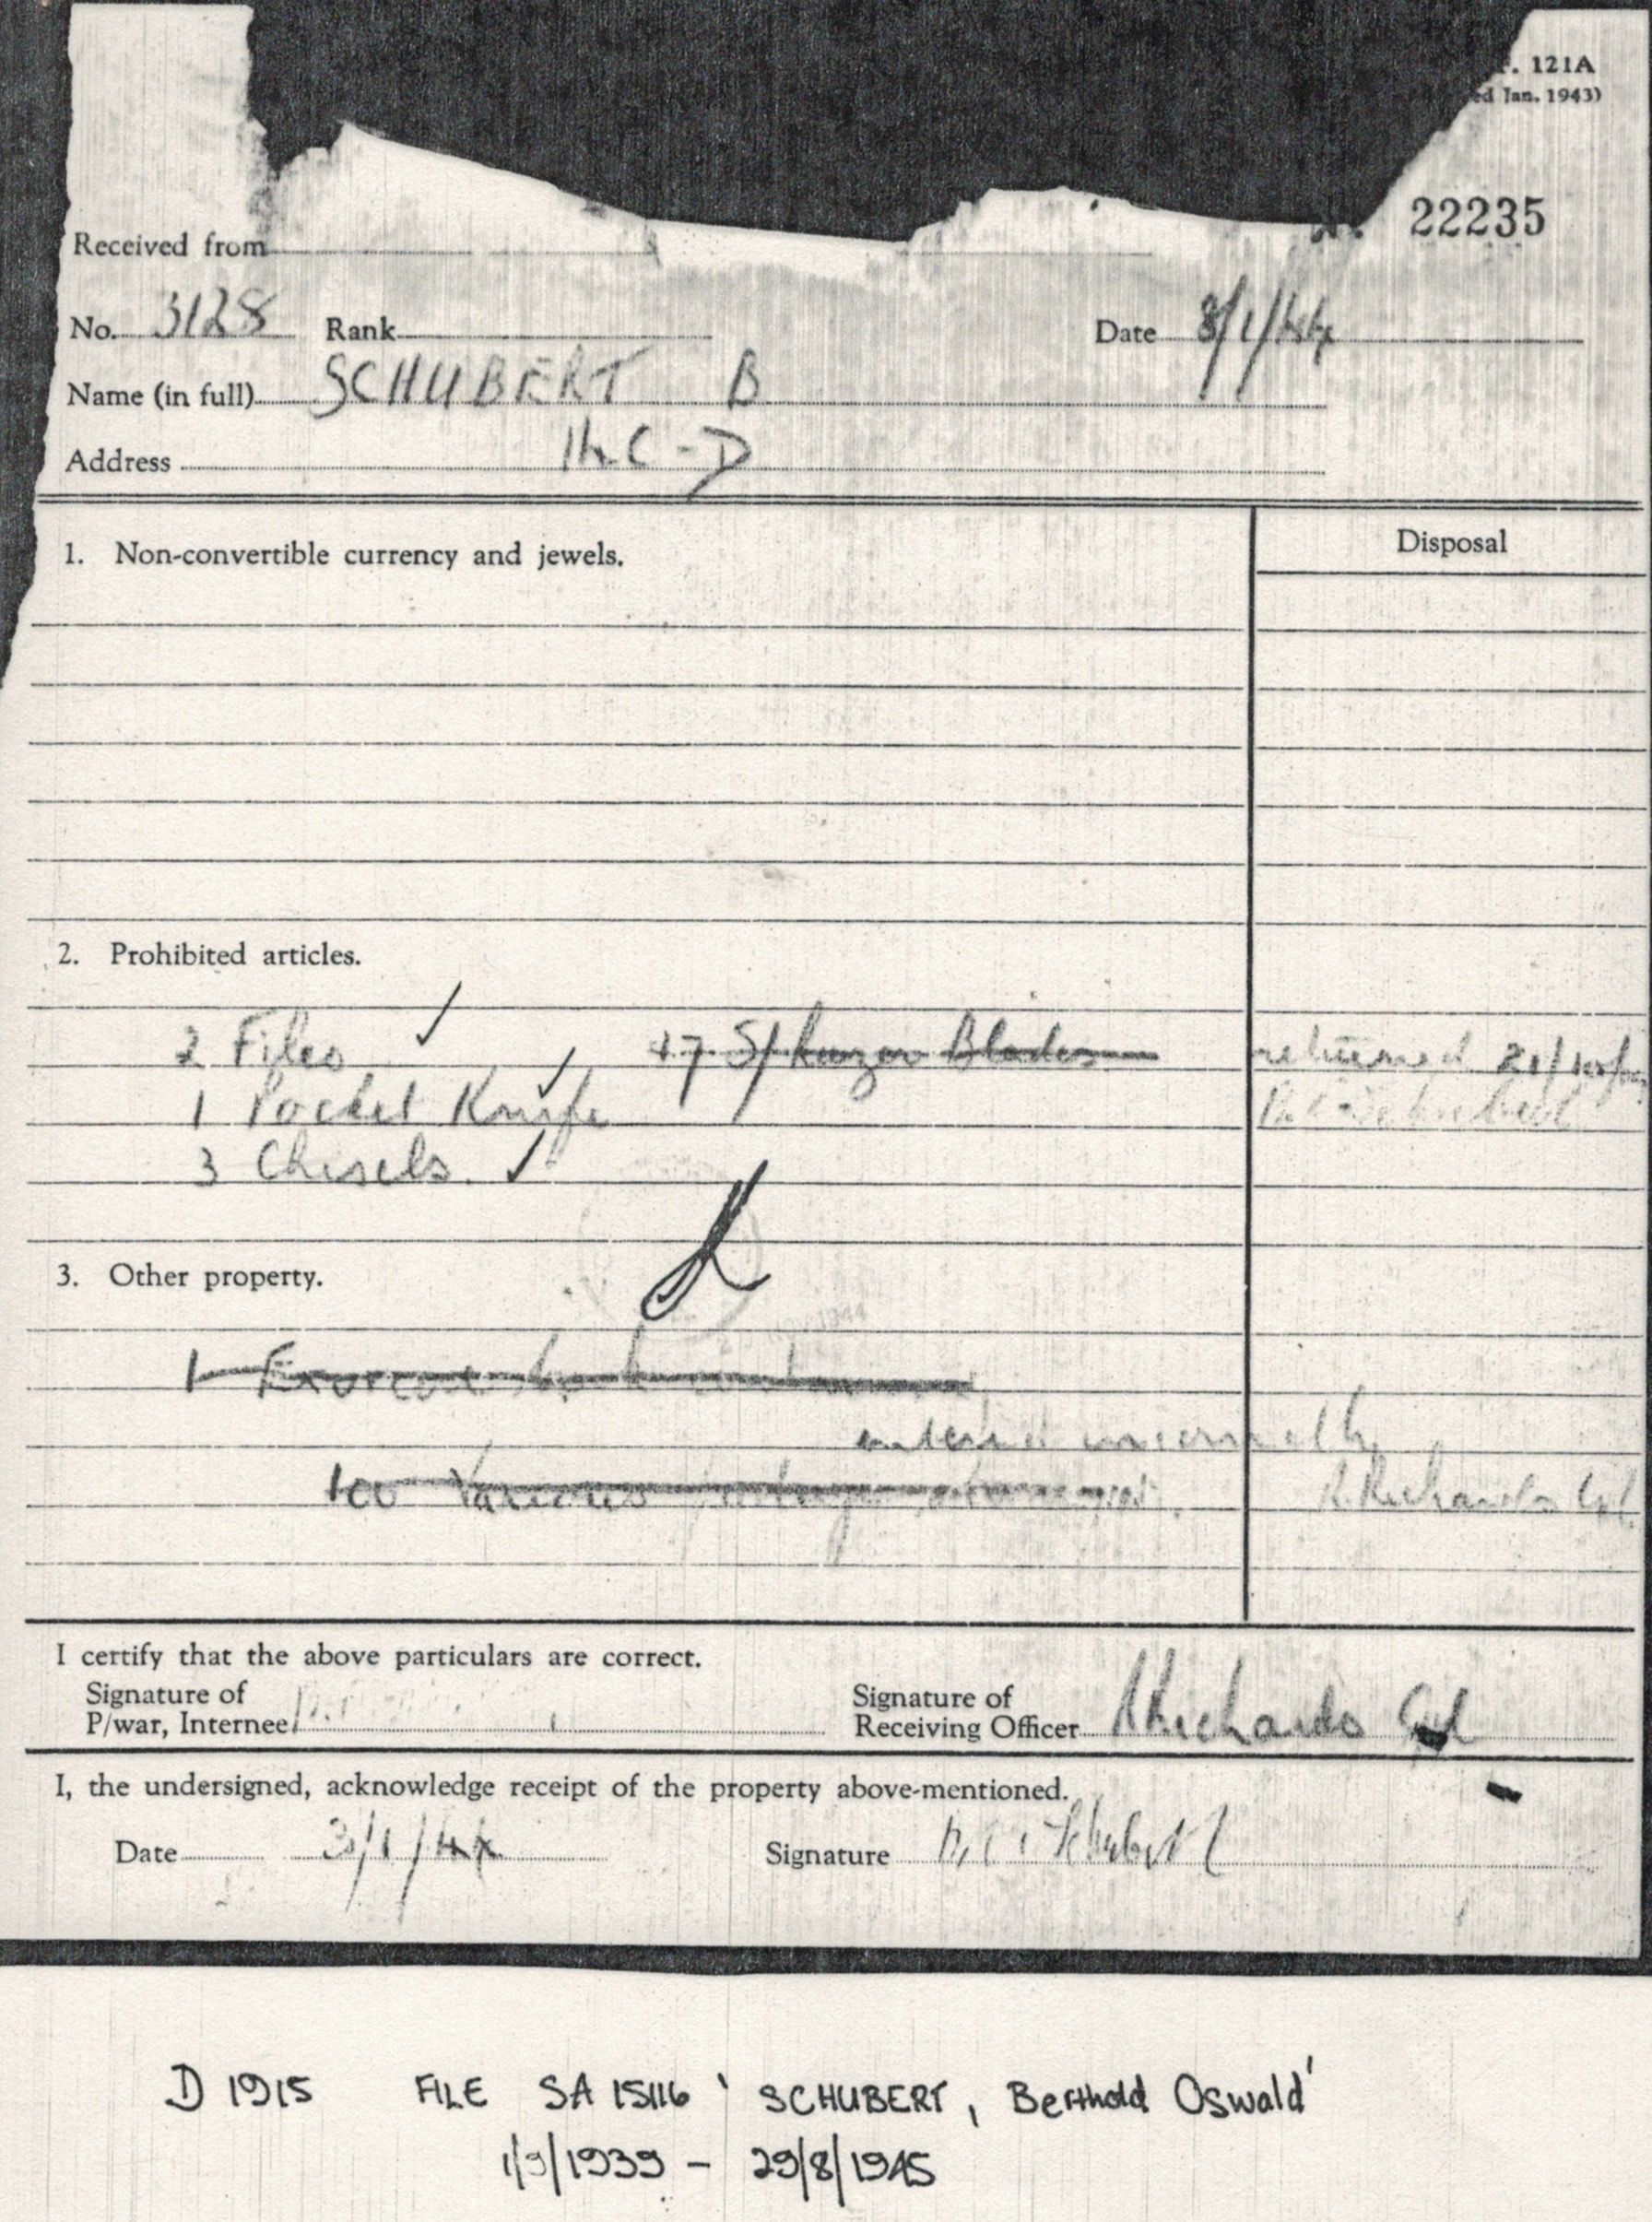 F. 121A
ed Jan. 1943)
22235
Received from
No. 3128 Rank Date 8/1/44
Name (in full) SCHUBERT B
Address 14 C-D
Disposal
1. Non-convertible currency and jewels.
2. Prohibited articles.
2 Files ✓ 17 S/ Razor Blades returned
1 Pocket Knife ✓ Schubert
3 Chisels. ✓
3. Other property.
1 Exercise book
entered incorrectly
Various
R Richards Cpl
I certify that the above particulars are correct.
Signature of
P/war, Internee
Signature of
Receiving Officer R Richards Cpl
I, the undersigned, acknowledge receipt of the property above-mentioned.
Date 3/1/44 Signature Schubert
D 1915 FILE SA 15116 ' SCHUBERT, Berthold Oswald'
1/9/1939 - 29/8/1945